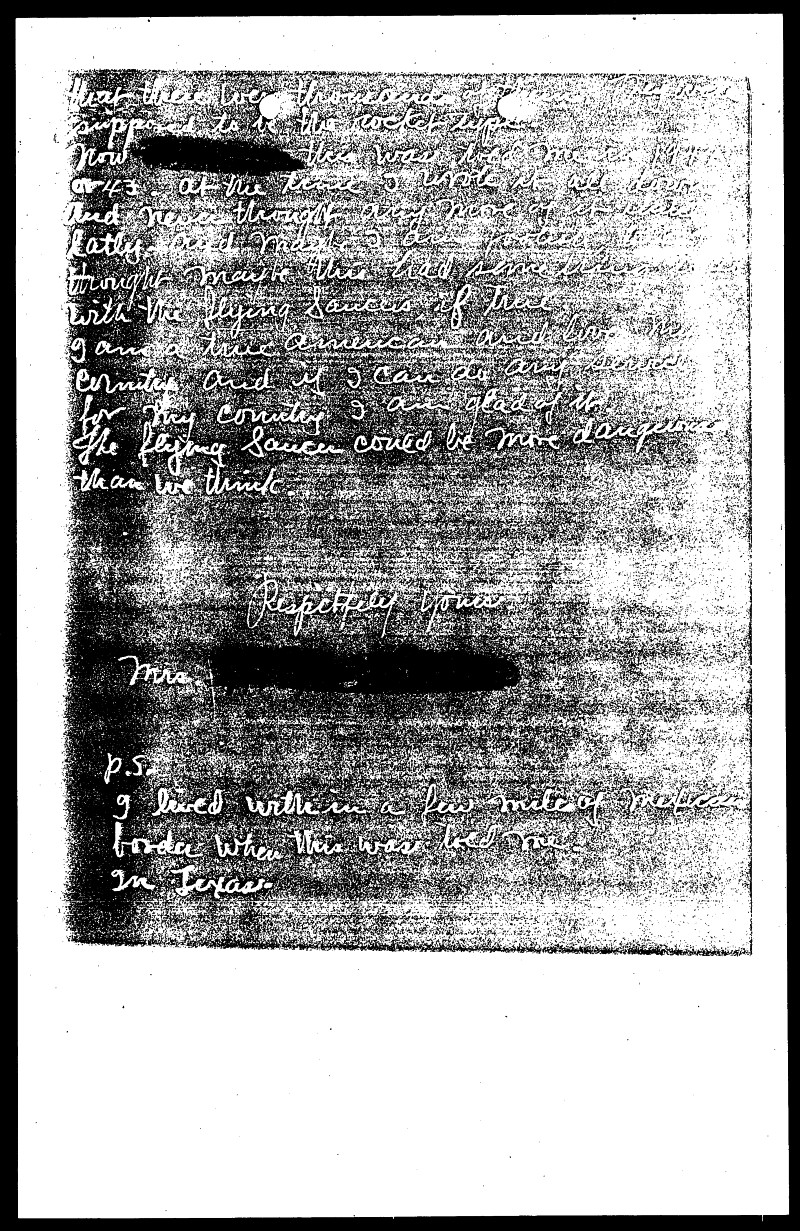 that there were thousands of
suppose to be the rocket type.
Now this was told me in 194
or 43. at the time I wrote it all down
And never thought any more of it until
latly. and maybe I am foolish, but I
thought maybe this had something to
with the flying Saucers, if True.
I am a true american and love my
country and if I can do any service
for my country I am glad of it.
The flying Saucer could be more dangerous
than we think.
Respectfely yours.
Mrs.
P.S.
I lived within a few mile of mexican
border when this was told me.
In Texas.